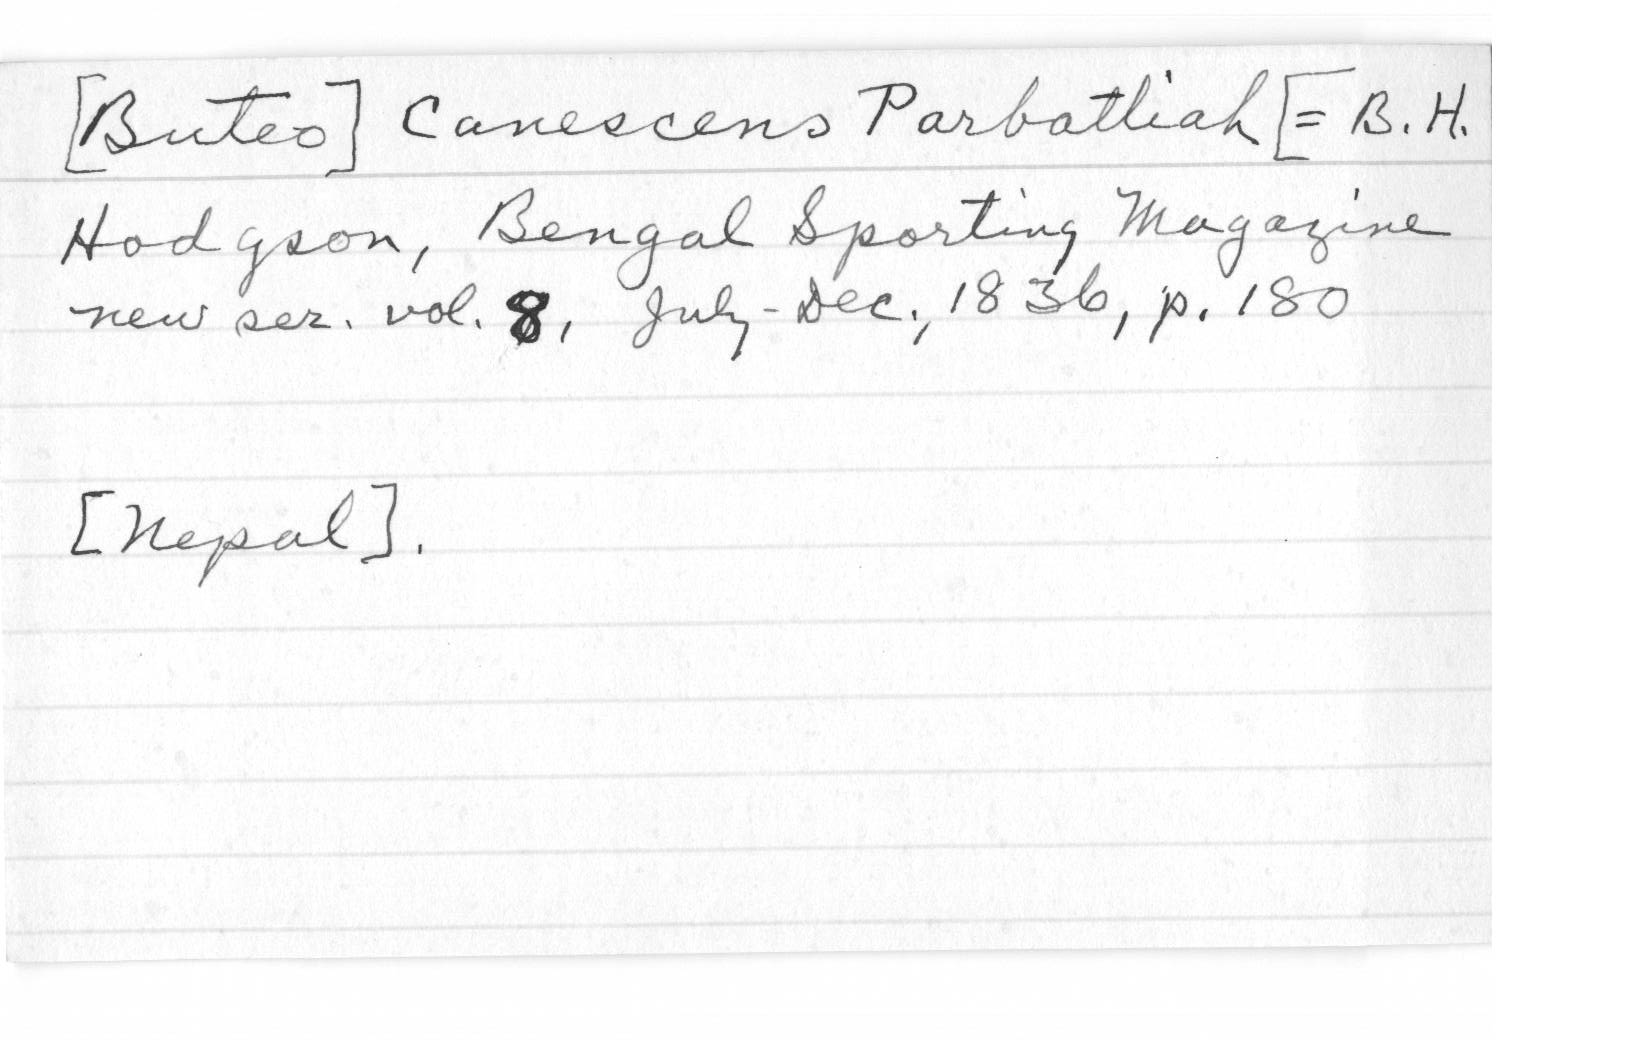 [Buteo] Canescens Parbattiah [= B. H.
Hodgson, Bengal Sporting Magazine
new ser. vol. 8, July-Dec., 1836, p. 180
[Nepal].